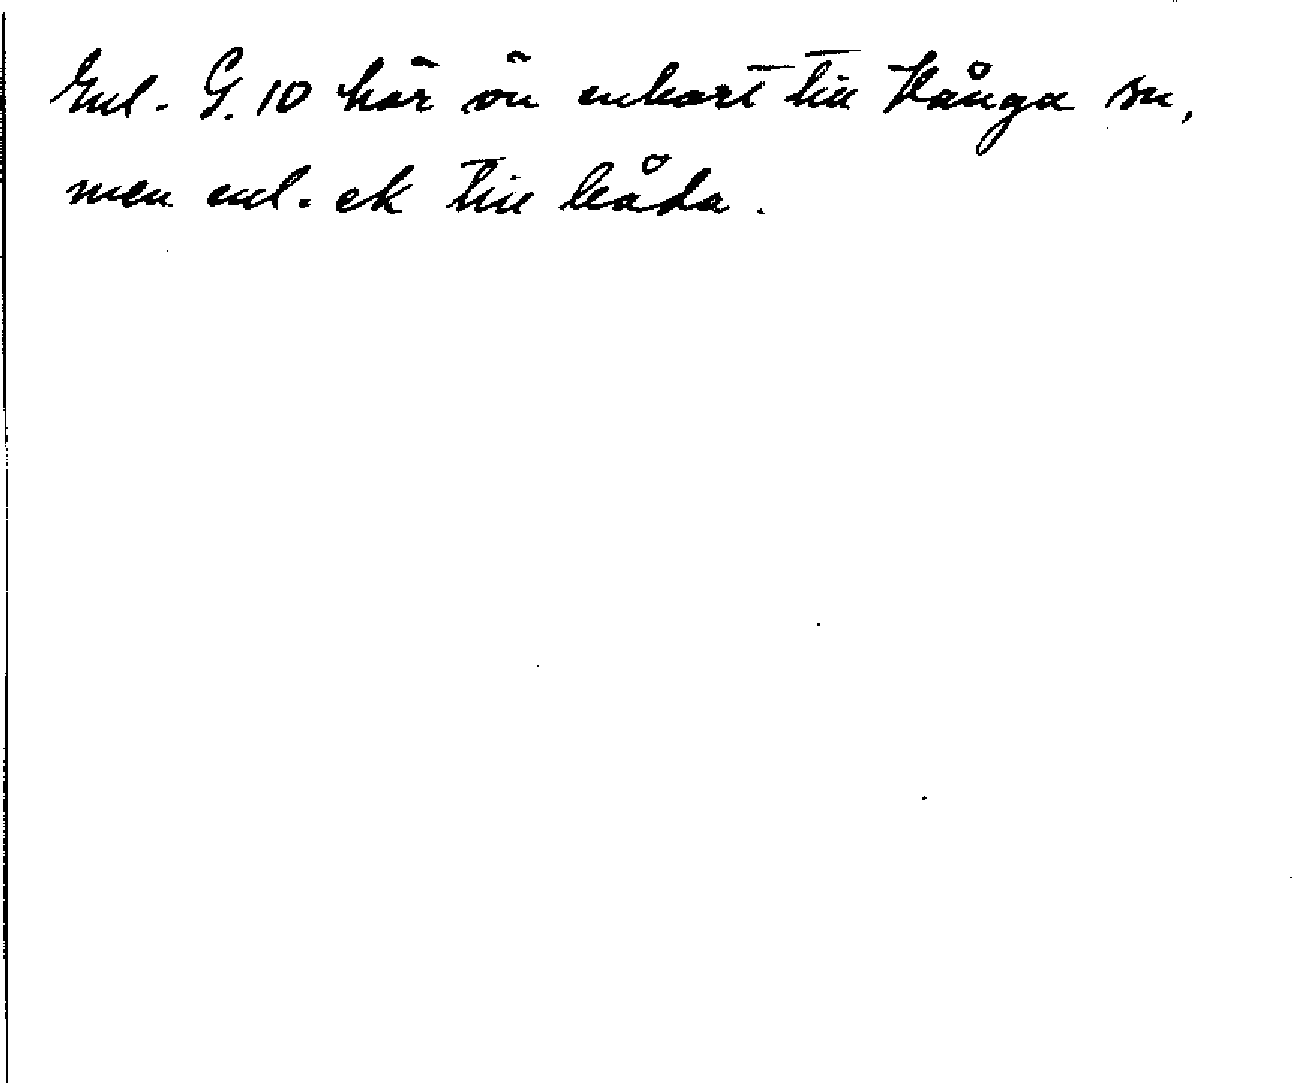 Enl. G. 10 hör ön enbart till Kånga sn,
men enl. ek till båda.